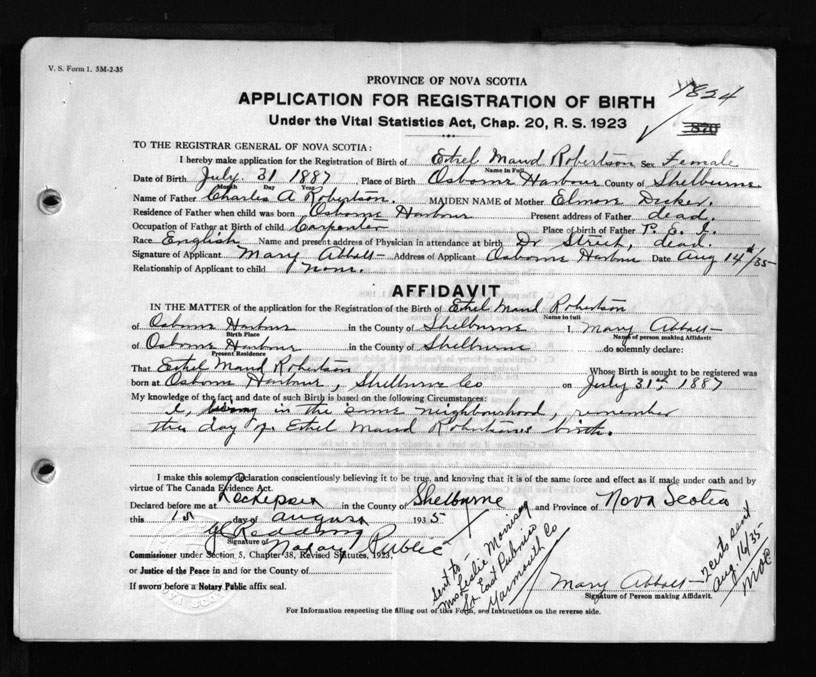 V. S. Form 1. 5M-2-35
PROVINCE OF NOVA SCOTIA
APPLICATION FOR REGISTRATION OF BIRTH
1824
Under the Vital Statistics Act, Chap. 20, R. S. 1923
870
TO THE REGISTRAR GENERAL OF NOVA SCOTIA:
I hereby make application for the Registration of Birth of Ethel Maud Robertson Sex Female
Name in Full
Date of Birth July 31 1887 Place of Birth Osborne Harbour County of Shelburne
Month Day Year
Name of Father Charles A Robertson. MAIDEN NAME of Mother
Residence of Father when child was born Osborne Harbour Present address of Father dead.
Occupation of Father at Birth of child Carpenter Place of birth of Father P. E. I.
Race English Name and present address of Physician in attendance at birth Dr dead.
Signature of Applicant Mary Address of Applicant Osborne Harbour Date Aug 14th/35
Relationship of Applicant to child none.
AFFIDAVIT
IN THE MATTER of the application for the Registration of the Birth of Ethel Maud Robertson
Name in full
of Osborne Harbour in the County of Shelburne I, Mary
Birth Place Name of person making Affidavit
of Osborne Harbour in the County of Shelburne do solemnly declare:
Present Residence
That Ethel Maud Robertson Whose Birth is sought to be registered was
born at Osborne Harbour, Shelburne Co on July 31st, 1887
My knowledge of the fact and date of such Birth is based on the following Circumstances:
I, being in the same neighbourhood, remember
the day of Ethel Maud Robertson's birth.
I make this solemn Declaration conscientiously believing it to be true, and knowing that it is of the same force and effect as if made under oath and by
virtue of The Canada Evidence Act.
Declared before me at Lockeport in the County of Shelburne and Province of Nova Scotia
this day of August 1935
Redding
Signature of Notary Public
Commissioner under Section 5, Chapter 38, Revised Statutes, 1923,
or Justice of the Peace in and for the County of
If sworn before a Notary Public affix seal.
Sent to -
Mrs Leslie
East Pubnico
Yarmouth Co
Mary
Signature of Person making Affidavit.
sent
Aug 16/35
For Information respecting the filling out of this Form, see Instructions on the reverse side.